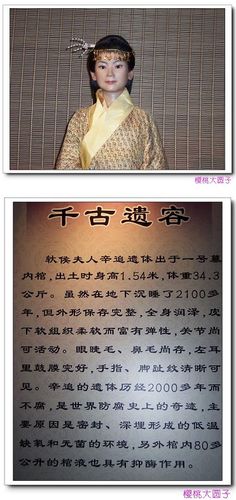 樱桃大圆子
千古遗容
软侯夫人辛追遗体出于一号墓
内棺，出土时身高1.54米，体重34.3
公斤。虽然在地下沉睡了2100多
年，但外形保存完整，全身润泽，皮
下软组织柔软而富有弹性，关节尚
可活动。眼睫毛、鼻毛尚存，左耳
里鼓膜完好，手指、脚趾纹清晰可
见。辛追的遗体历经2000多年而
不腐，是世界防腐史上的奇迹，主
要原因是密封、深埋形成的低温
缺氧和无菌的环境，另外棺内80多
公升的棺液也具有抑酶作用。
樱桃大圆子